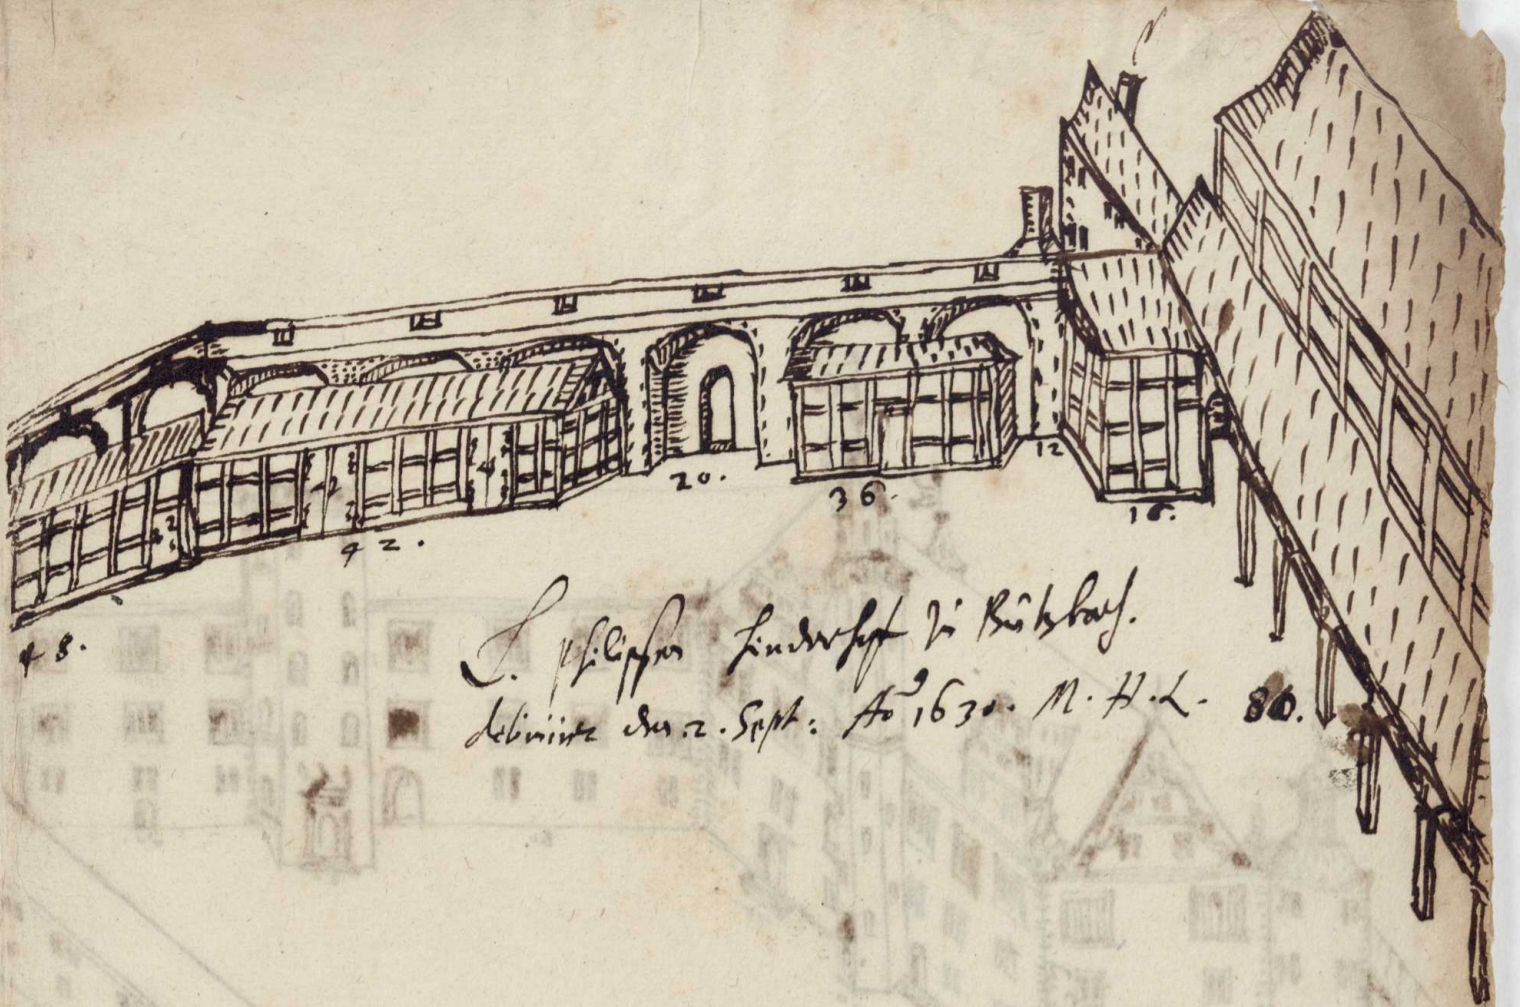 20.
36.
12
16.
42.
48.
L. Philipsen hinderhoff zu Bützbach.
den 2. Sept: Ao 1630. M. H. L. 80.